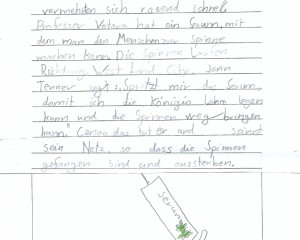 vermehrten sich rasend schnell
Professor Votava hat ein Serum, mit
dem man den Menschen zur Spinne
machen kann. Die Spinnen laufen
Richtung West Land City. Jann
Tenner sagt: "Spritzt mir das Serum,
damit ich die Königin lahm legen
kann und die Spinnen weg bringen
kann." Genau das tat er und spinnt
sein Netz, so dass die Spinnen
gefangen sind und aussterben.
Serum